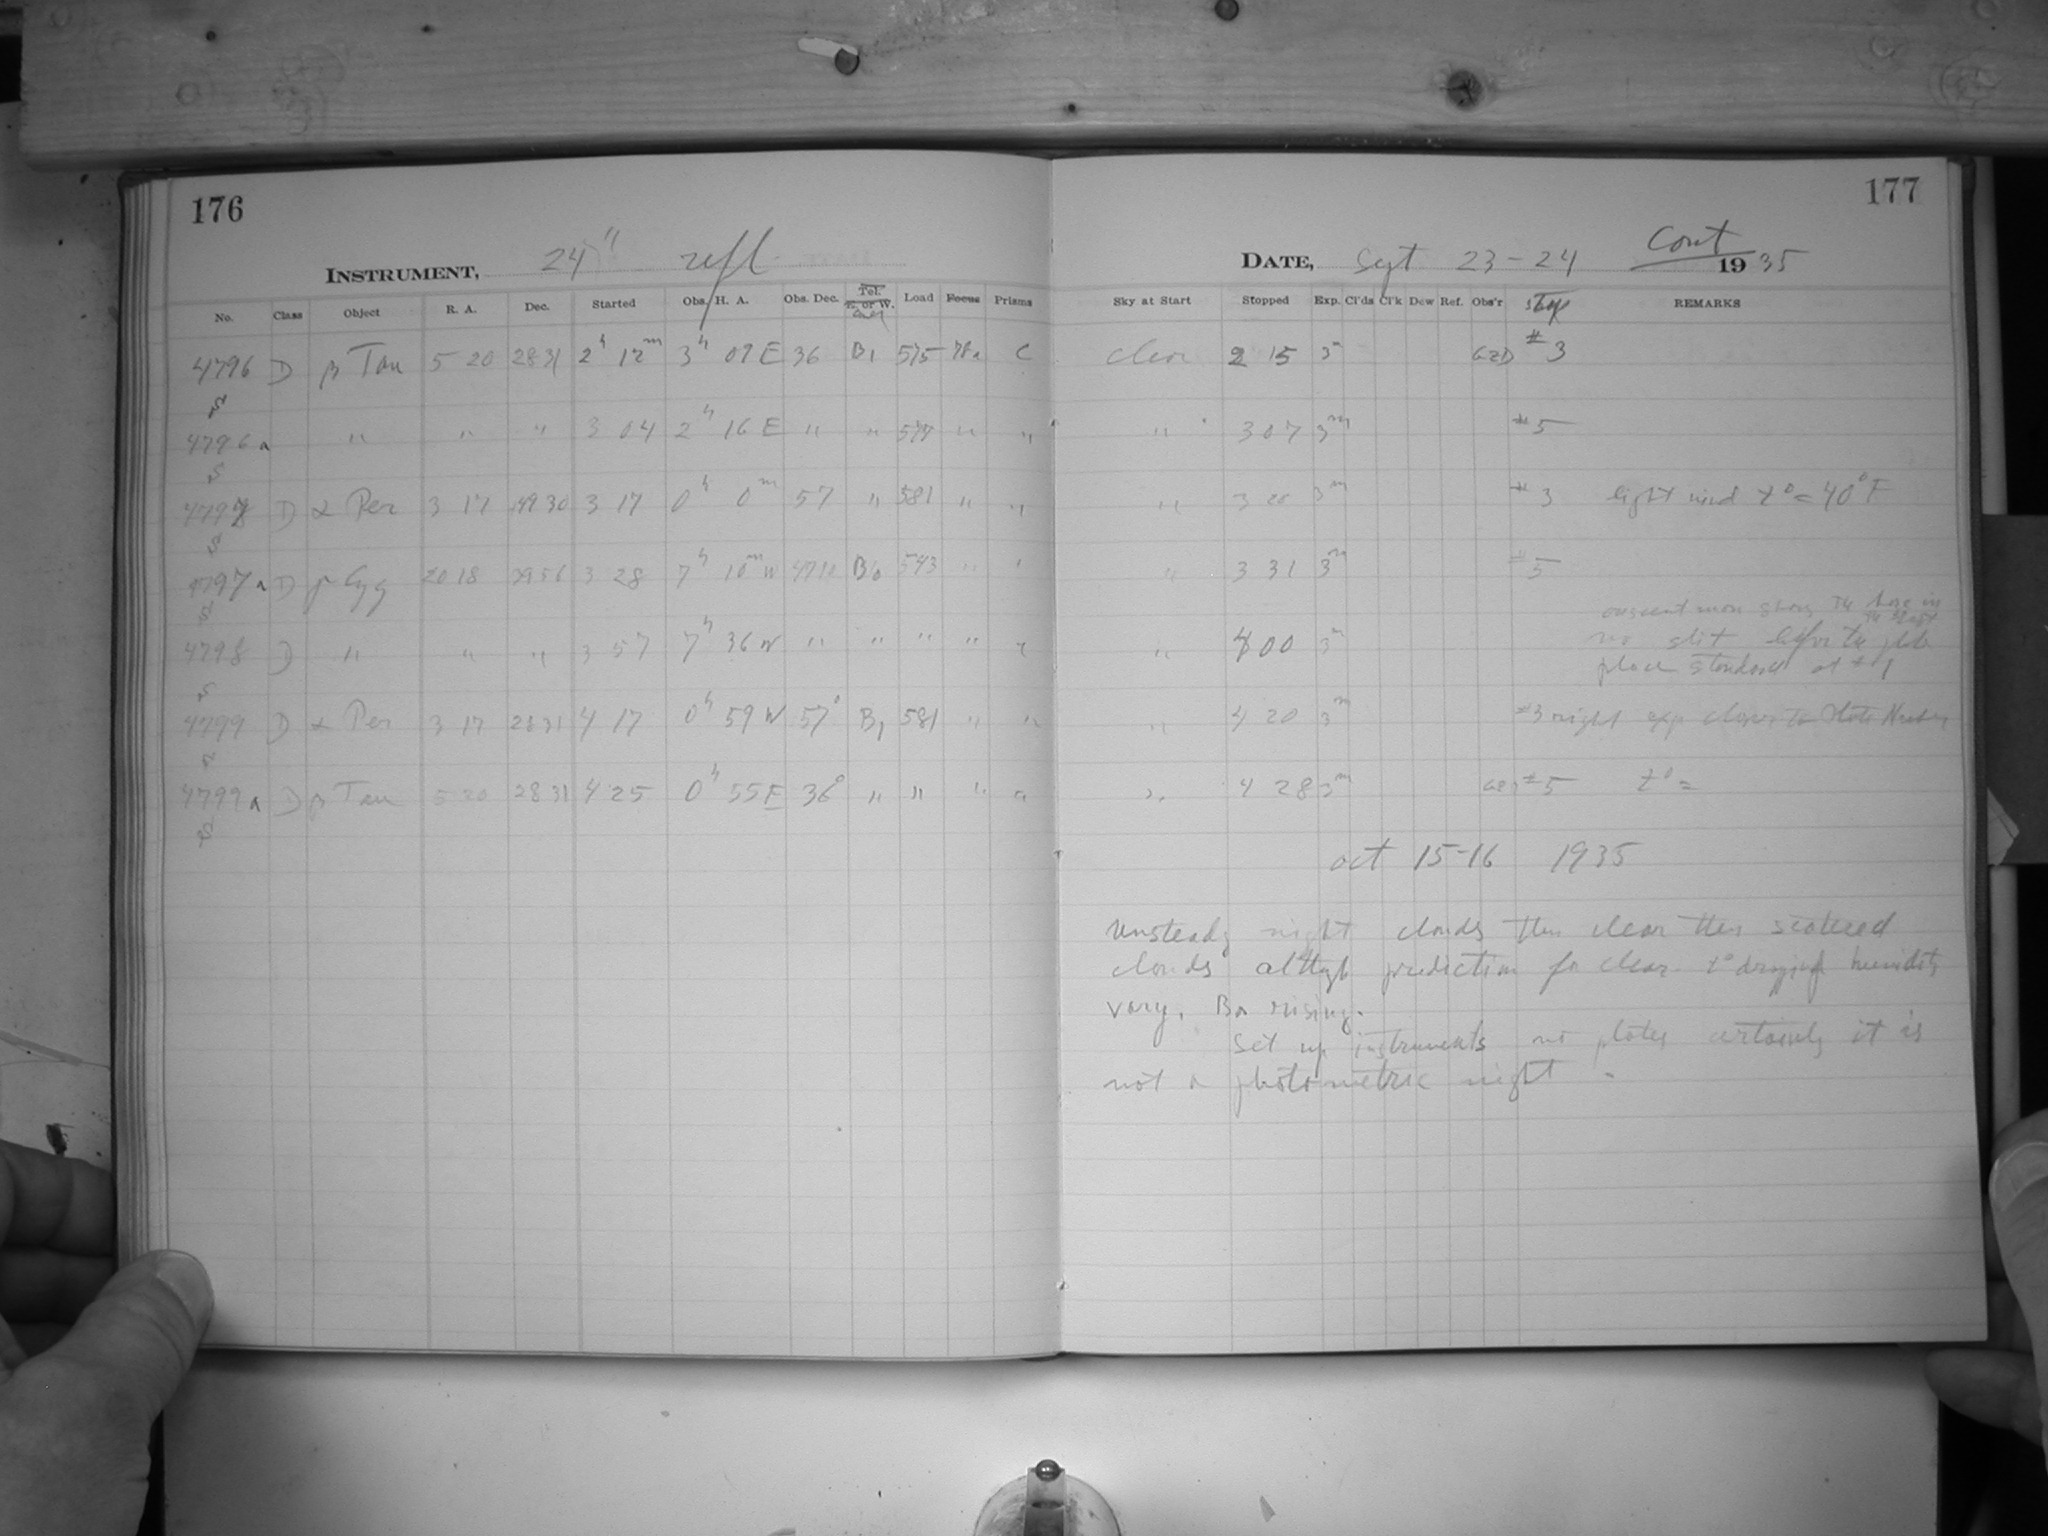 176
INSTRUMENT, 24" refl.
No. Class Object R. A. Dec. Started Obs. H. A. Obs. Dec. Tel. E. or W. Load Focus Prisms
4796 D β Tau 5 20 28 31 2h 12m 3h 07 E 36 B1 575 78a C
S
4796a " " " 3 04 2h 16 E " " 574 " "
S
4797 D α Per 3 17 49 30 3 17 0h 0m 57 " 581 " "
S
4797a D γ Cyg 20 18 39 56 3 28 7h 10m W 4710 B0 543 " "
S
4798 D " " " 3 57 7h 36 W " " " " "
S
4799 D α Per 3 17 28 31 4 17 0h 59 W 57° B1 581 " "
S
4799a D β Tau 5 20 28 31 4 25 0h 55 E 36° " " " "
S
177
Cont
DATE, Sept 23-24 1935
Sky at Start Stopped Exp. Cl'ds Cl'k Dew Ref. Obs'r Stop REMARKS
clear 2 15 3 #3
" 3 07 3m #5
" 3 20 3m #3 light wind t° = 40°F
" 3 31 3m #5
crescent moon in the East
" 4 00 3m no slit before the plate
place standard at #1
" 4 20 3m #3 right exp closer to Plate Number
" 4 28 3m #5 t° =
Oct 15-16 1935
Unsteady night clouds then clear then scattered
clouds although prediction for clear. t° dropping humidity
vary, Ba rising.
Set up instruments no plates certainly it is
not a photometric night.